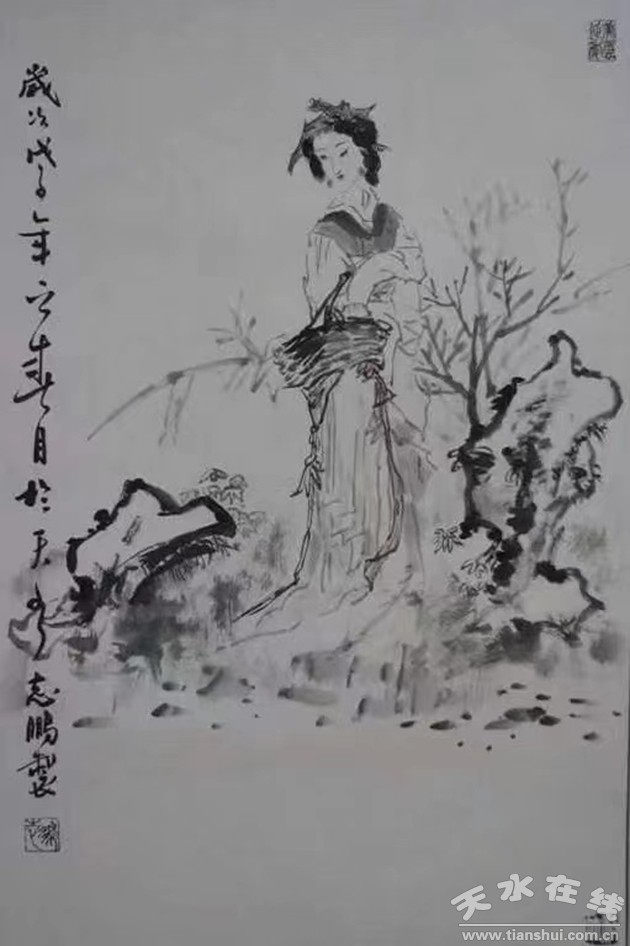 歲次戊子年之春月於天水志鵬製
天水在线
www.tianshui.com.cn